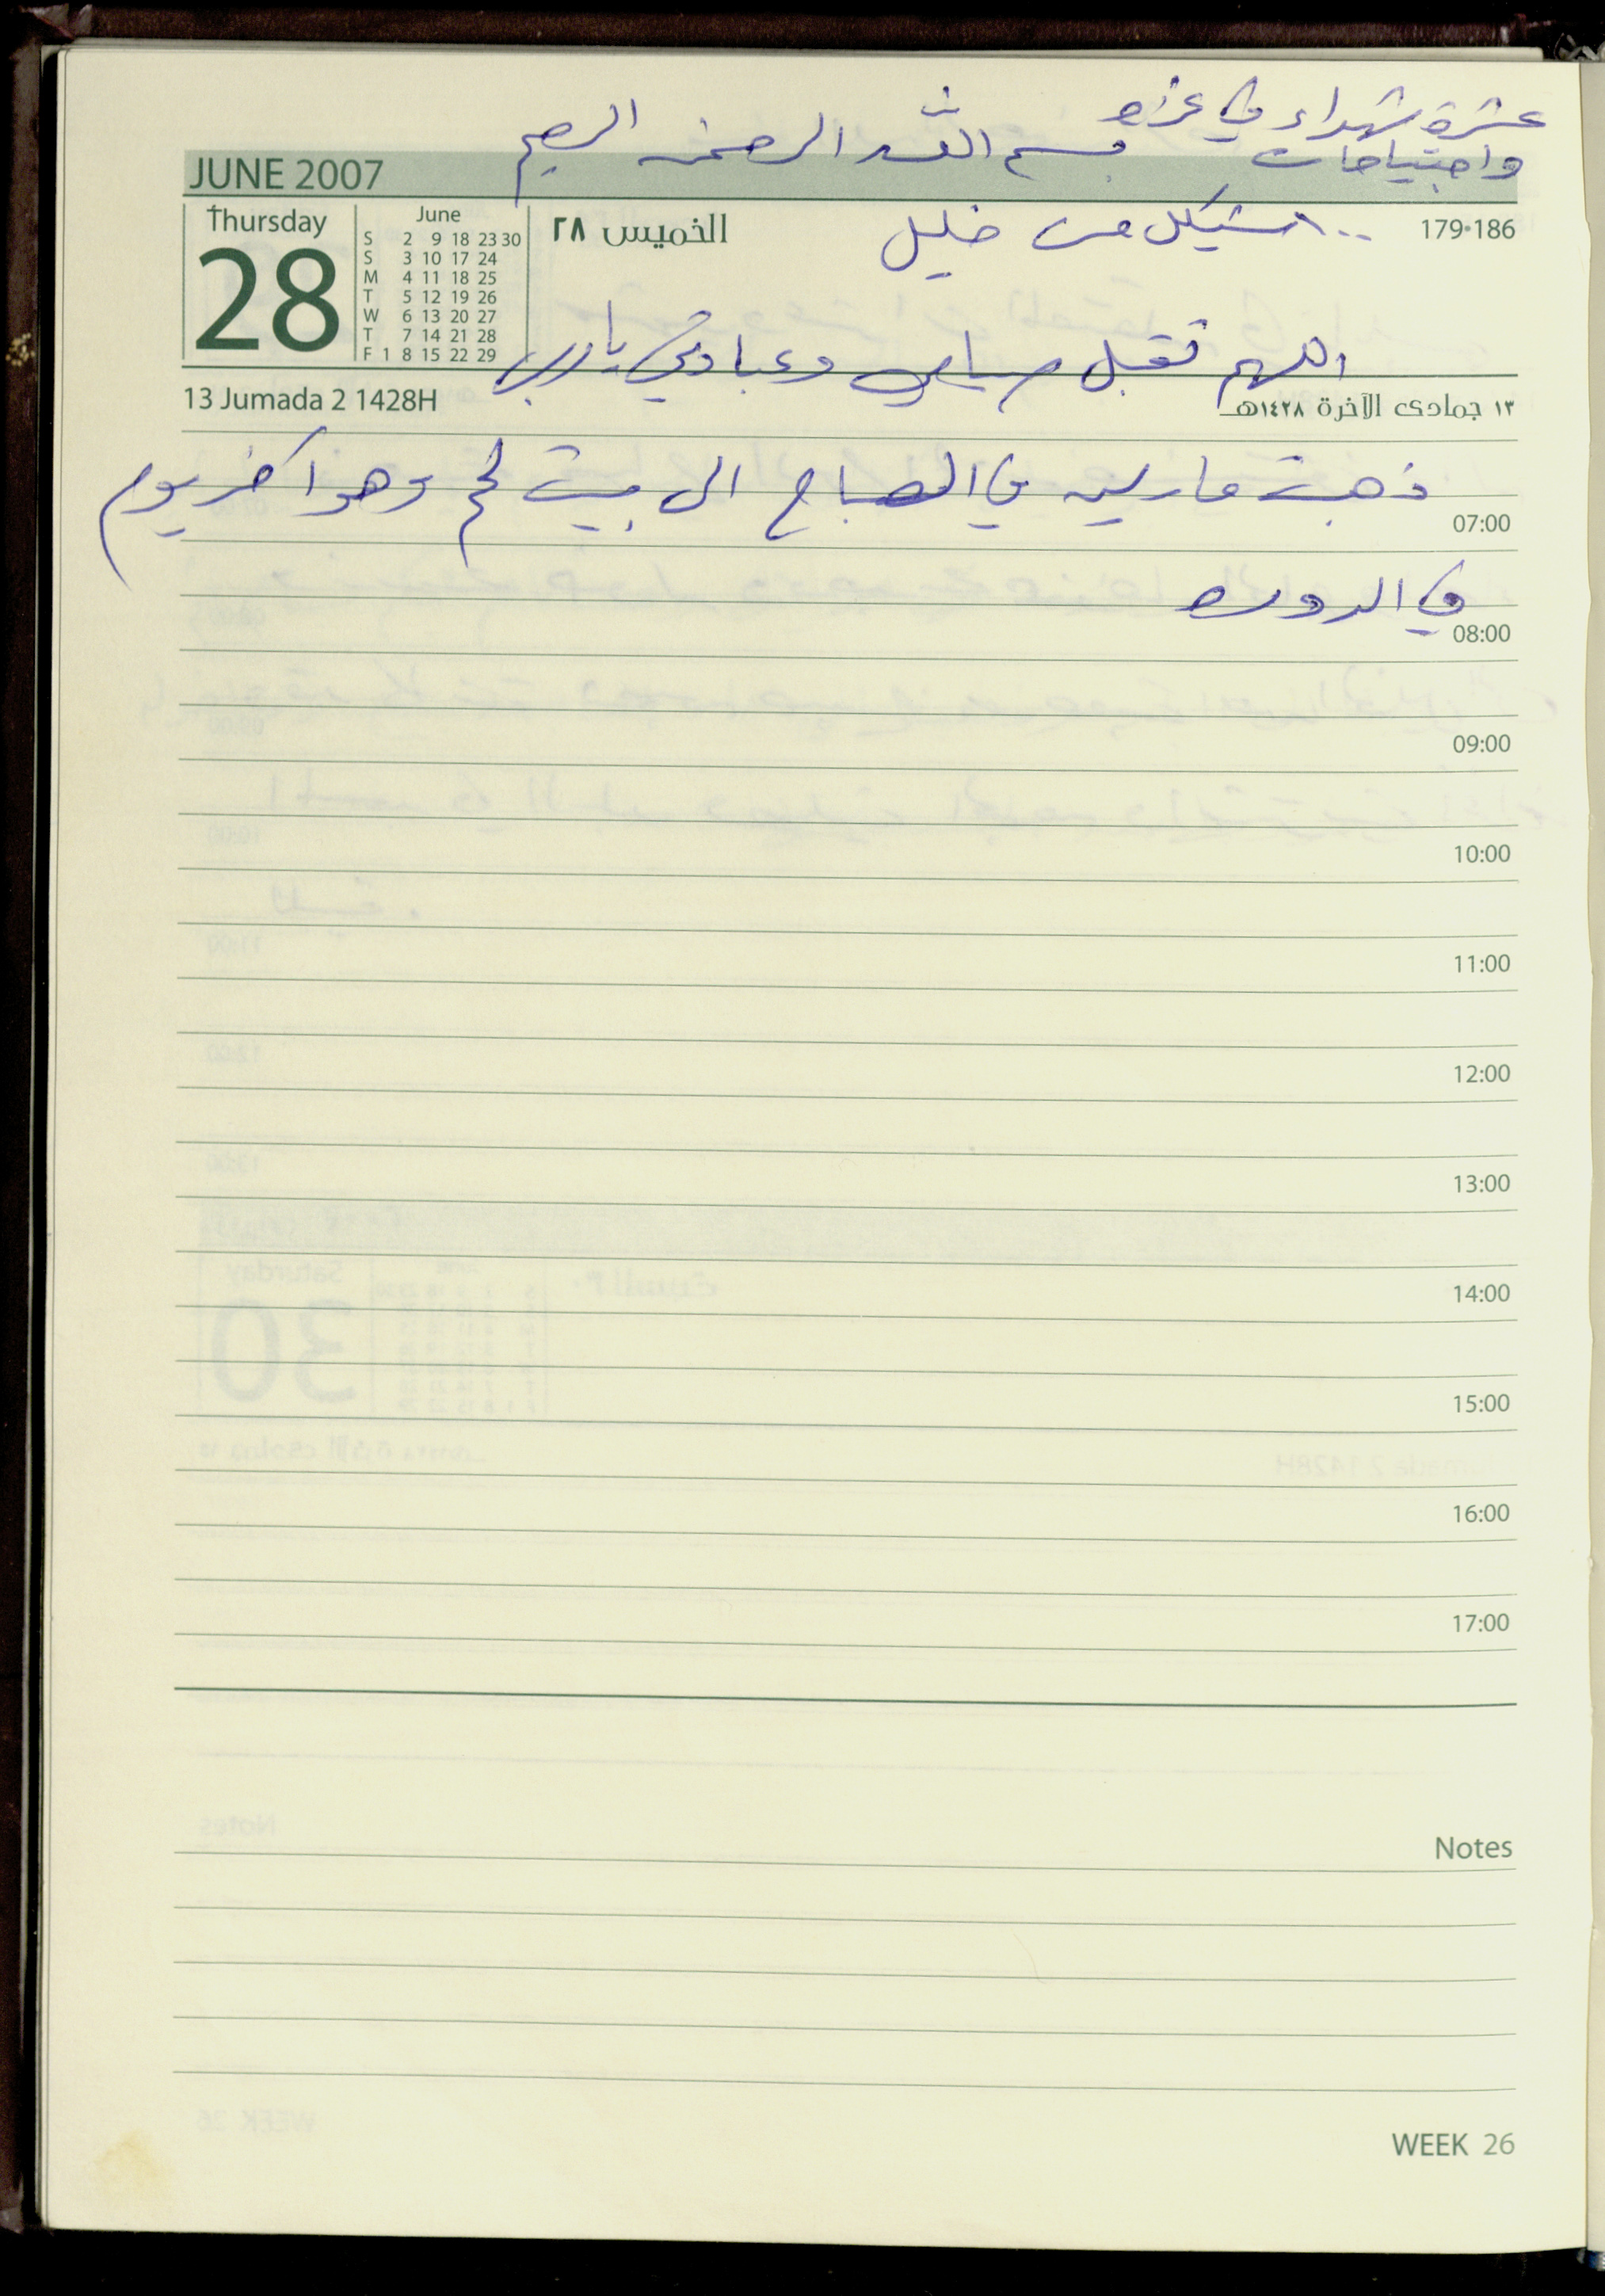 عشرة شهداء في غزه
واجتياحات
بسم الله الرحمن الرحيم
JUNE 2007
Thursday
28
June
S 2 9 18 23 30
S 3 10 17 24
M 4 11 18 25
T 5 12 19 26
W 6 13 20 27
T 7 14 21 28
F 1 8 15 22 29
الخميس ٢٨
١٠٠ شيكل من خليل
179•186
اللهم تقبل صيامي وعبادتي يا رب
13 Jumada 2 1428H
١٣ جمادى الآخرة ١٤٢٨هـ
ذهبت في الصباح الى بيت لحم وهو اخر يوم
07:00
في الدوره
08:00
09:00
10:00
11:00
12:00
13:00
14:00
15:00
16:00
17:00
Notes
WEEK 26